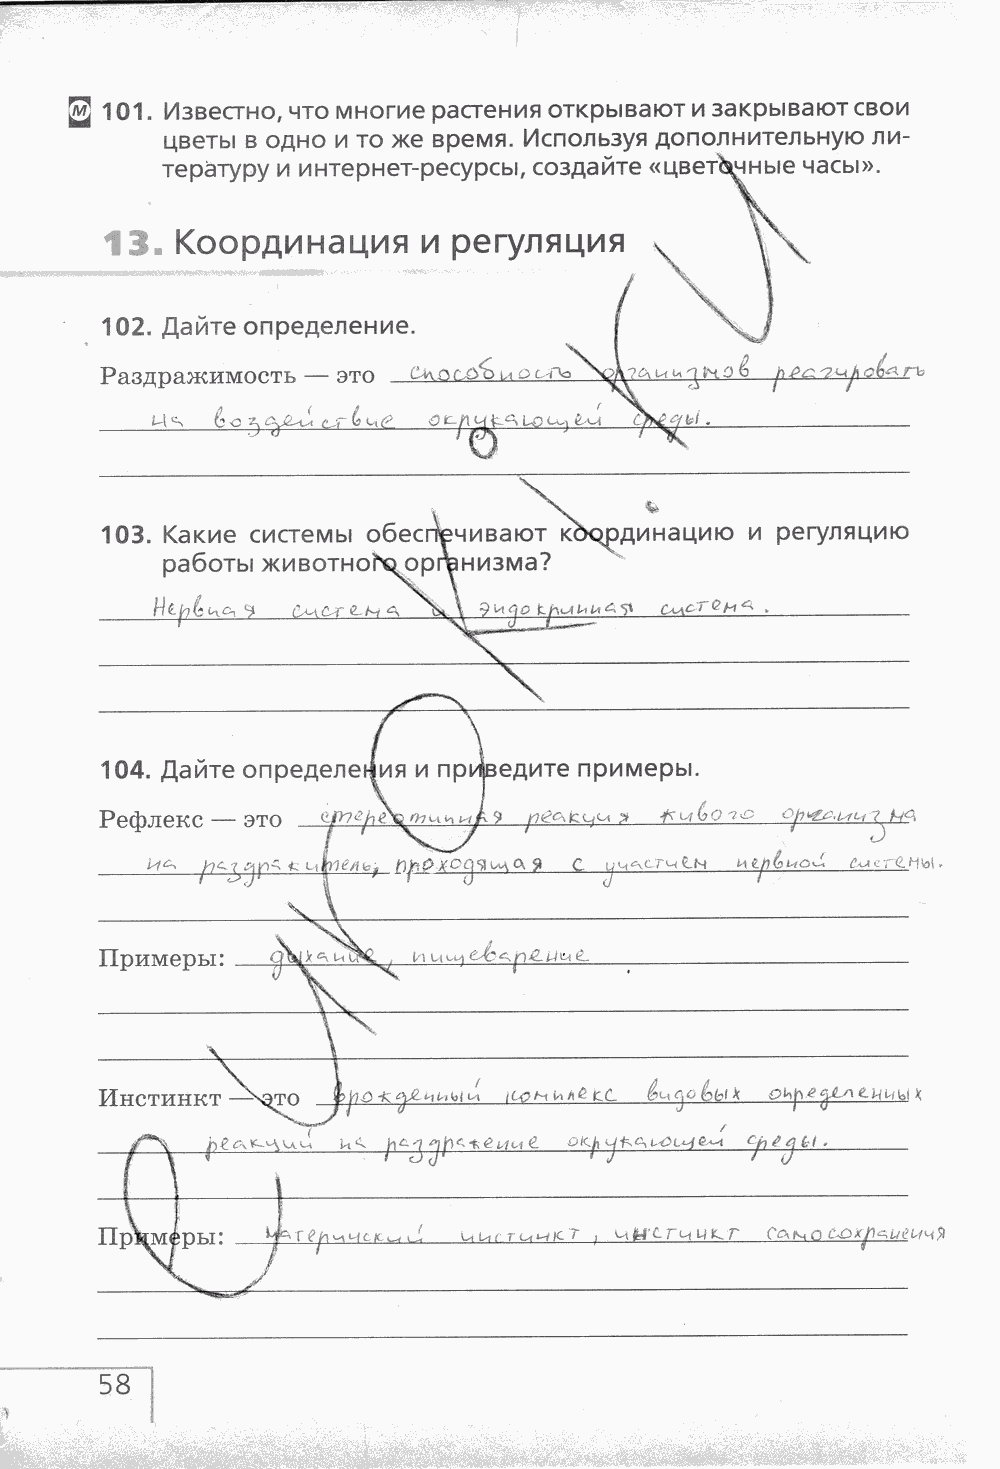 М 101. Известно, что многие растения открывают и закрывают свои
цветы в одно и то же время. Используя дополнительную ли-
тературу и интернет-ресурсы, создайте «цветочные часы».
13. Координация и регуляция
102. Дайте определение.
Раздражимость — это способность организмов реагировать
на воздействие окружающей среды.
103. Какие системы обеспечивают координацию и регуляцию
работы животного организма?
Нервная система и эндокринная система.
104. Дайте определения и приведите примеры.
Рефлекс — это стереотипная реакция живого организма
на раздражитель, проходящая с участием нервной системы.
Примеры: дыхание, пищеварение
Инстинкт — это врожденный комплекс видовых определенных
реакций на раздражение окружающей среды.
Примеры: материнский инстинкт, инстинкт самосохранения
58